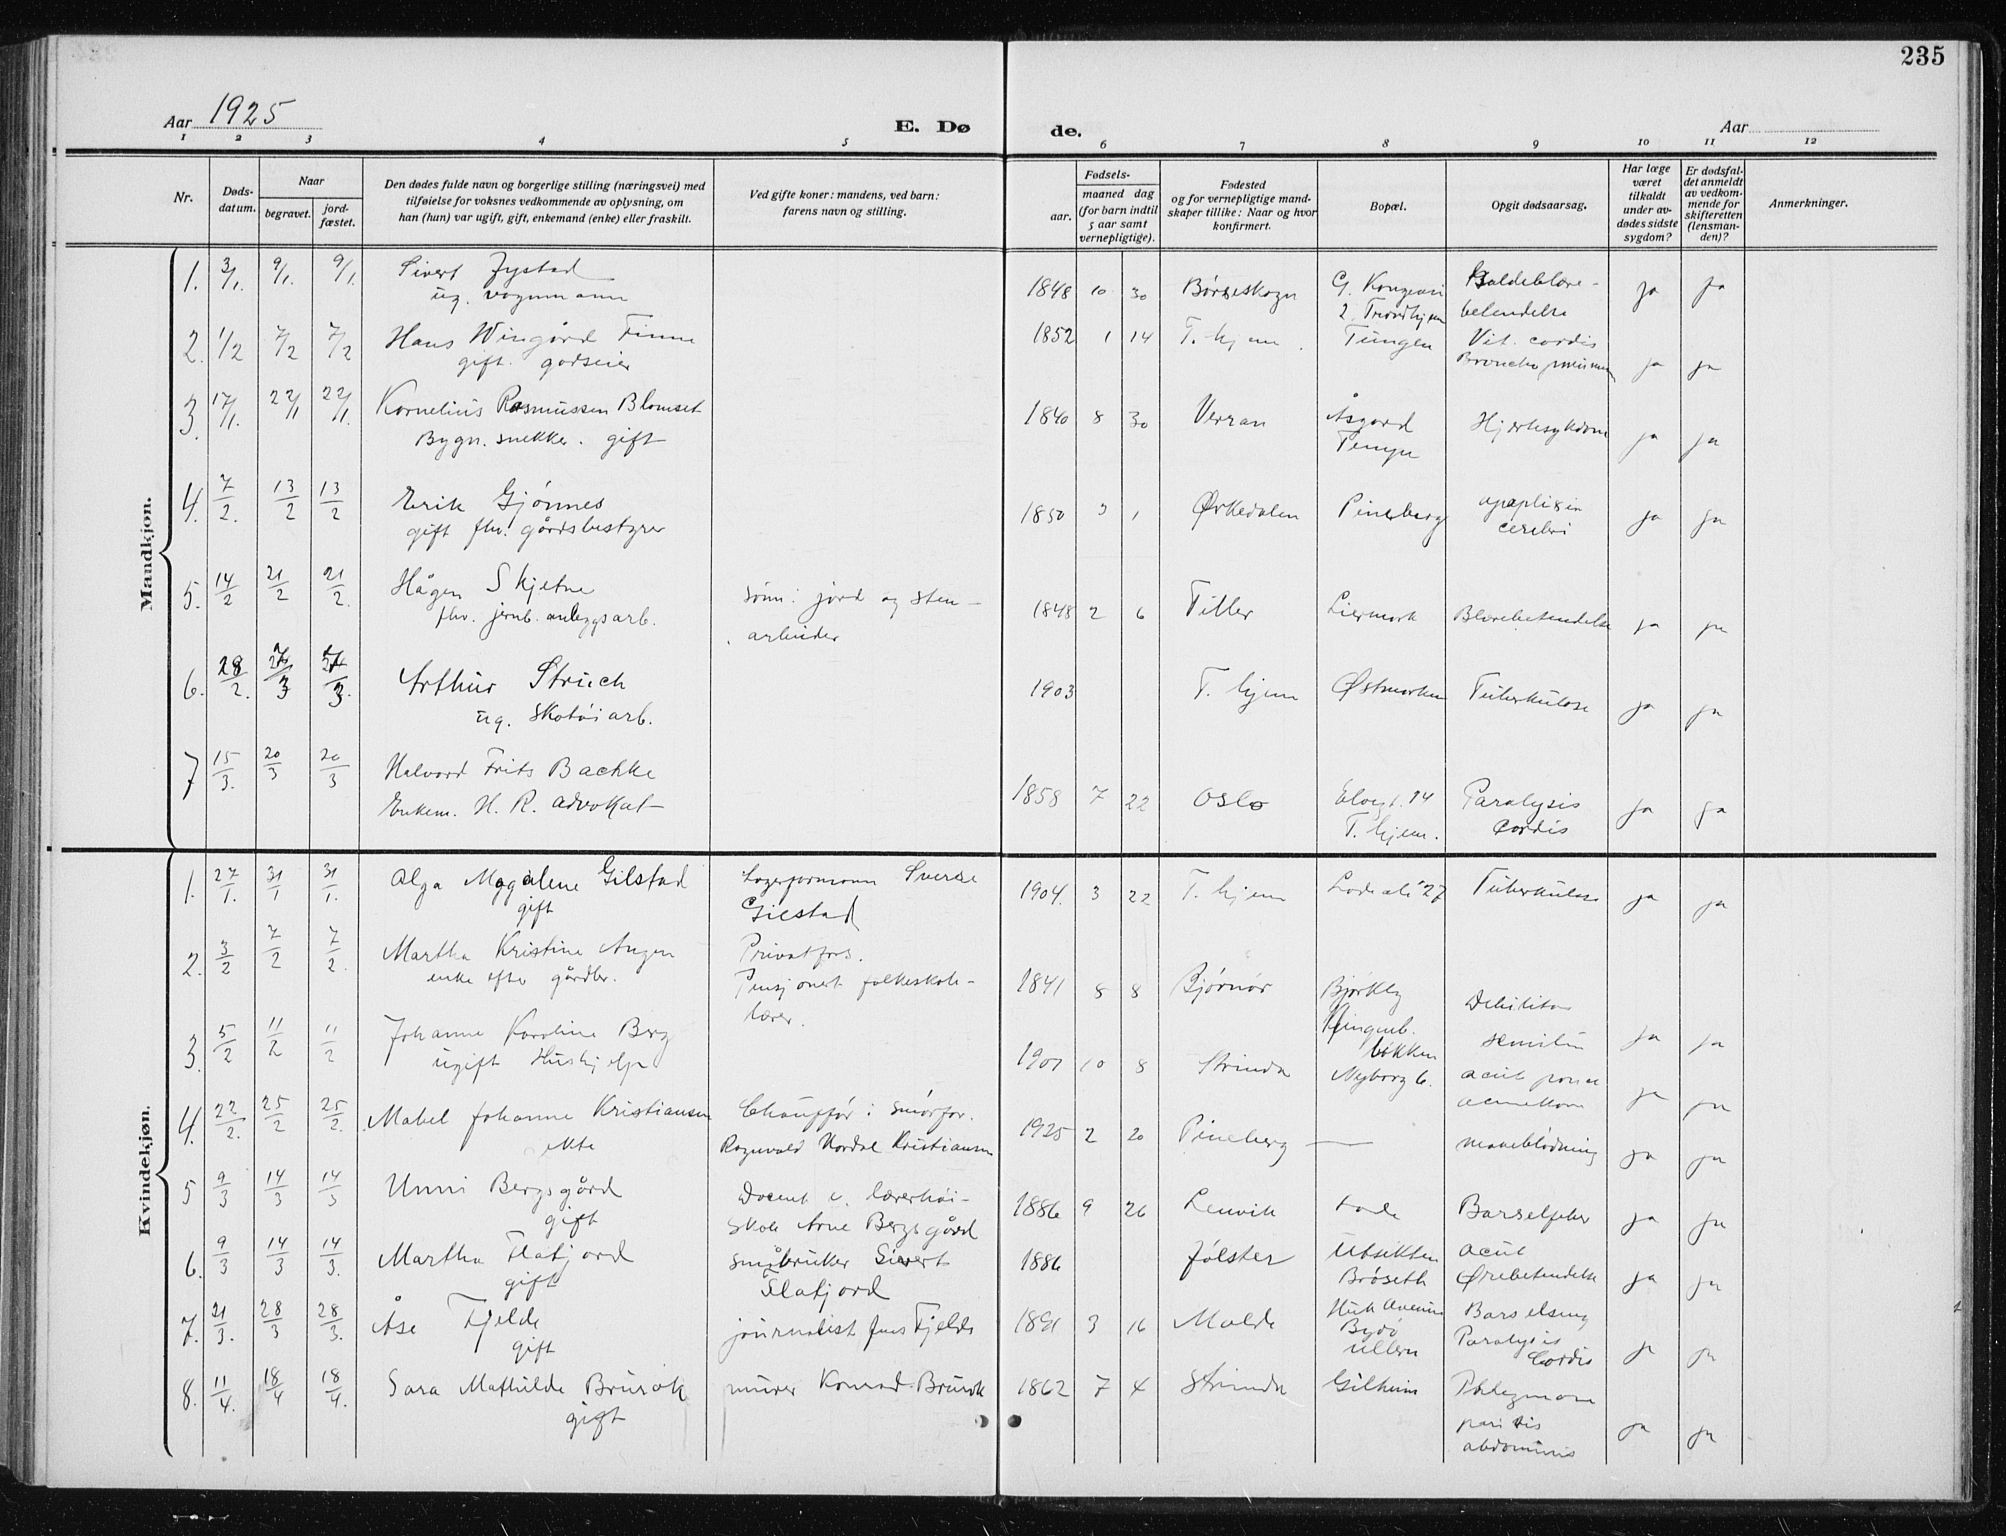 235
Aar 1925
E. Dø
de.
Aar
1 2 3 4 5 6 7 8 9 10 11 12
Nr.
Døds-
datum.
Naar
begravet.
jord-
fæstet.
Den dødes fulde navn og borgerlige stilling (næringsvei) med
tilføielse for voksnes vedkommende av oplysning, om
han (hun) var ugift, gift, enkemand (enke) eller fraskilt.
Ved gifte koner: mandens, ved barn:
farens navn og stilling.
Fødsels-
aar.
maaned dag
(for barn indtil
5 aar samt
vernepligtige).
Fødested
og for vernepligtige mand-
skaper tillike: Naar og hvor
konfirmert.
Bopæl.
Opgit dødsaarsag.
Har læge
været
tilkaldt
under av-
dødes sidste
sygdom?
Er dødsfal-
det anmeldt
av vedkom-
mende for
skifteretten
(lensman-
den)?
Anmerkninger.
Mandkjøn.
1. 3/1. 9/1. 9/1. Sivert Jystad 1848 10 30 Børseskogn ja ja
ug. vognmann 2. Trondhjem
2. 1/2 7/2 7/2 Hans Wingård Finne 1852 1 14 T. hjem. Tungen Vit. cordis
gift. godseier ja ja
3. 17/1. 22/1 22/1. Kornelius Rasmussen Blomset 1840 8 30 Verran Åsgård Hjertesykdom
Bygn. snekker. gift Tempe ja ja
4. 7/2. 13/2 13/2 Erik Gjønnes 1850 3 1 Ørkedalen Pineberg apoplexia
gift fhv. gårdsbestyrer cerebri ja ja
5. 14/2 21/2 21/2. Hågen Skjetne sønn: jord og sten- 1848 2 6 Tiller Liermark Blærebetendelse ja ja
fhv. jernb. anleggsarb. arbeider
6. 28/2. Arthur Struch 1903 T. hjem Østmarken Tuberkulose ja ja
ug. skotøiarb.
7 15/3. 20/3 20/3 Halvard Frits Bachke 1858 7 22 Oslo Elvegt. 14 Paralysis ja ja
Enkem. H. R. advokat T. hjem. Cordis
Kvindekjøn.
1. 27/1. 31/1 31/1. Olga Magdalene Gilstad Lagerformann Sverre 1904. 3 22 T. hjem Lade alé 27 Tuberkulose ja ja
gift Gilstad
2. 3/2 7/2 7/2. Martha Kristine Augen Privatfors. 1841 8 8 Bjørnør Bjørkly Debilitas
enke efter gårdbr. Pensjonert folkeskole- ja ja
lærer.
3. 5/2 11/2 11/2 Johanne Karoline Berg 1901 10 8 Strinda Klingenb.
ugift Hushjelp bakken
Nyborg 6. ja ja
4. 22/2. 25/2 25/2. Mabel Johanne Kristiansen Chauffør i smørfor. 1925 2 20 Pineberg — maveblødning ja ja
ekte Ragnvald Nordal Kristiansen
5 9/3 14/3 14/3 Unni Bergsgård Docent v. lærerhøi- 1886 9 26 Lenvik Lade Barselfeber ja ja
gift skole Arne Bergsgård
6. 9/3 14/3 14/3. Martha Flatjord småbruker Sivert 1886 Jølster Utsikten acut
gift Flatjord Brøseth Ørebetendelse ja ja
7. 21/3. 28/3 28/3. Åse Fjelde journalist Jens Fjelde 1891 3 16 Molde Bygdø Barselseng
gift Ullern Paralysis
Cordis ja ja
8. 11/4. 18/4 18/4. Sara Mathilde Brurok murer Konrad Brurok 1862 7 4 Strinda Gilheim Phlegmone
gift parietis
abdominis ja ja